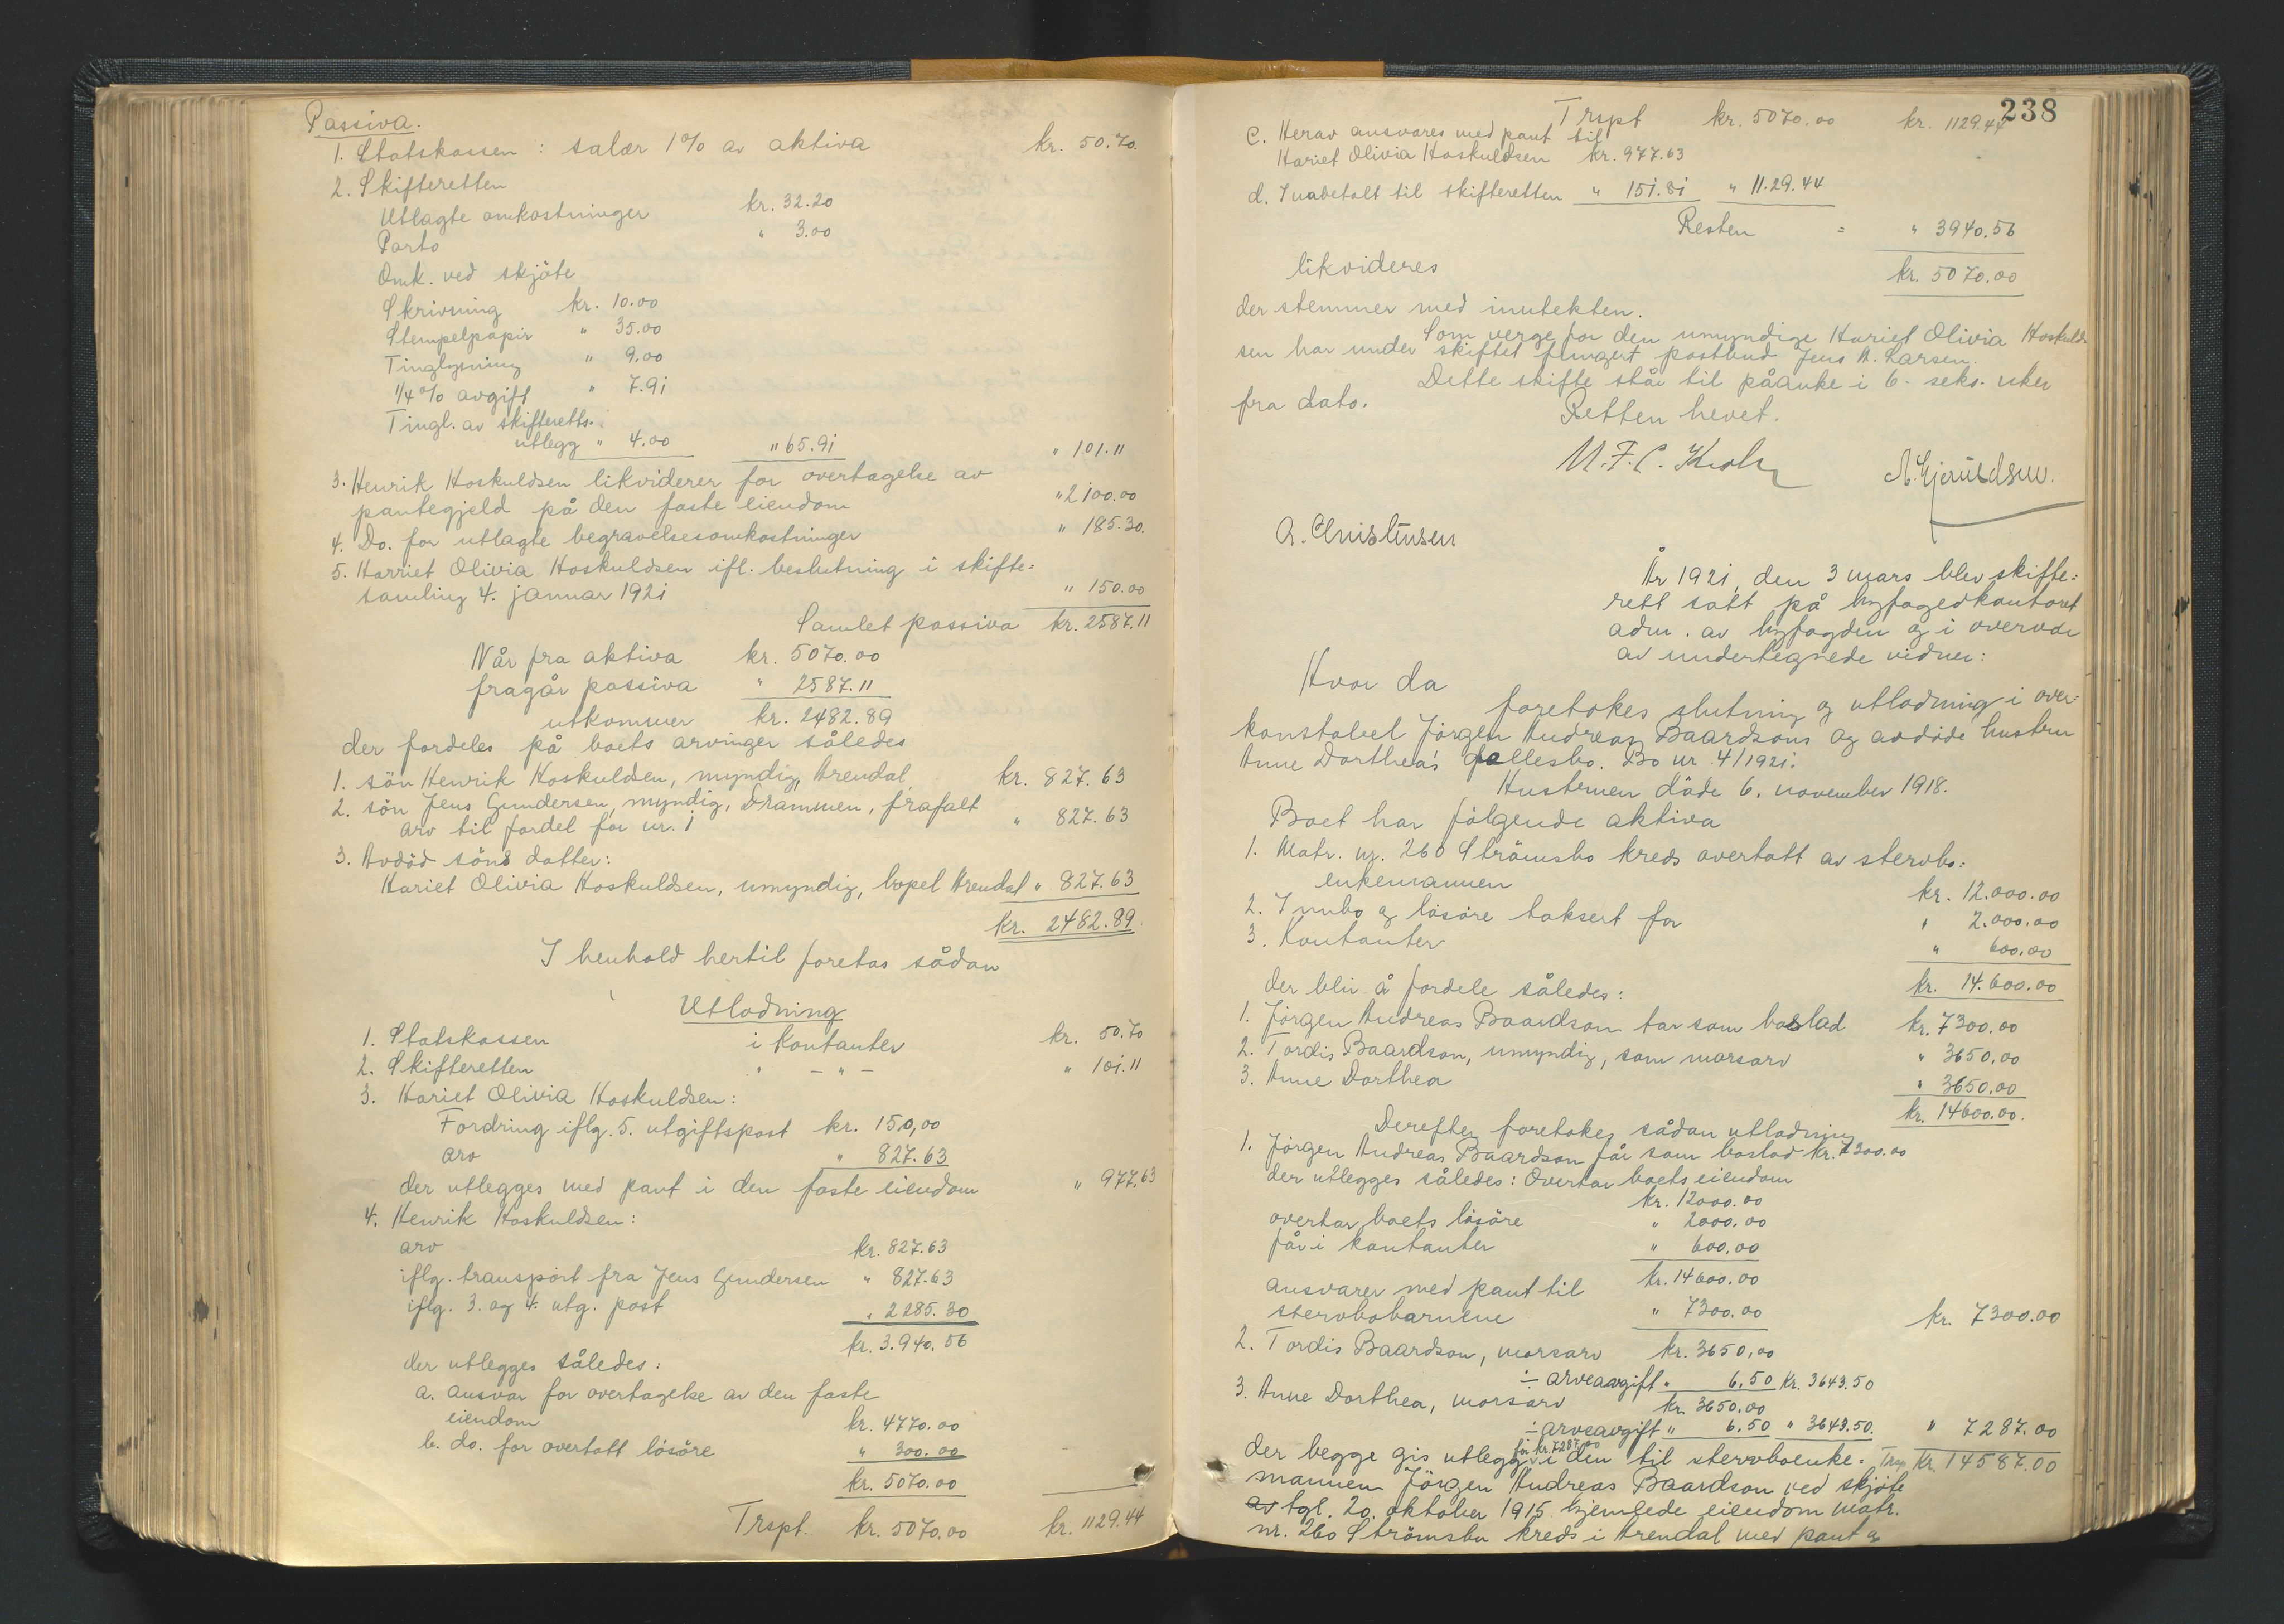 Passiva.
1. Statskassen : salær 1% av aktiva kr. 50.70.
2. Skifteretten
Utlagte omkostninger kr. 32.20
Porto " 3.00
Omk. ved skjöte
Skrivning kr. 10.00
Stempelpapir " 35.00
Tinglysning " 9.00
1/4% avgift " 7.91
Tingl. av skifteretts-
utlegg " 4.00 " 65.91 " 101.11
3. Henrik Hoskuldsen likviderer for overtagelse av
pantegjeld på den faste eiendom " 2100.00
4. Do. for utlagte begravelsesomkostninger " 185.30.
5. Harriet Olivia Hoskuldsen ifl. beslutning i skifte=
samling 4. januar 1921 " 150.00
Samlet passiva kr. 2587.11
Når fra aktiva kr. 5070.00
fragår passiva " 2587.11
utkommer kr. 2482.89
der fordeles på boets arvinger således
1. sön Henrik Hoskuldsen, myndig, Arendal kr. 827.63
2. sön Jens Gundersen, myndig, Drammen, frafalt
arv til fordel for nr. 1 " 827.63
3. Avdöd söns datter:
Hariet Olivia Hoskuldsen, umyndig, bopel Arendal " 827.63
kr. 2482.89.
I henhold hertil foretas sådan
Utlodning
1. Statskassen i kontanter kr. 50.70
2. Skifteretten " - " - " 101.11
3. Hariet Olivia Hoskuldsen:
Fordring iflg. 5. utgiftspost kr. 150,00
arv " 827.63
der utlegges med pant i den faste eiendom " 977.63
4. Henrik Hoskuldsen:
arv kr. 827.63
iflg. transport fra Jens Gundersen " 827.63
iflg. 3. og 4. utg. post " 2285.30
kr. 3.940.56
der utlegges således:
a. ansvar for overtagelse av den faste
eiendom kr. 4770.00
b. do. for overtatt lösöre " 300.00
kr. 5070.00
Trspt. kr. 5070.00 kr. 1129.44
238
Trspt kr. 5070.00 kr. 1129.44
c. Herav ansvares med pant til
Hariet Olivia Hoskuldsen kr. 977.63
d. Innbetalt til skifteretten " 151.81 " 11.29.44
Resten = " 3940.56
likvideres kr. 5070.00
der stemmer med inntekten.
Som verge for den umyndige Hariet Olivia Hoskuld-
sen har under skiftet fungert postbud Jens A. Larsen.
Dette skifte står til påanke i 6 - seks - uker
fra dato.
Retten hevet.
A. Christensen
År 1921, den 3 mars blev skifte=
rett satt på byfogedkontoret
adm. av byfogden og i overvær
av undertegnede vidner:
Hvor da
foretokes slutning og utlodning i over-
konstabel Jörgen Andreas Baardsons og avdöde hustru
Anne Dorthea's fellesbo. Bo nr. 4/1921.
Hustruen döde 6. november 1918.
Boet har fölgende aktiva
1. Matr. nr. 260 Strömsbo kreds overtatt av stervbo=
enkemannen kr. 12.000.00
2. Innbo og lösöre taksert for " 2.000.00
3. Kontanter " 600.00
der blir å fordele således: kr. 14.600.00
1. Jörgen Andreas Baardson tar som boslod kr. 7300.00
2. Tordis Baardson, umyndig, som morsarv " 3650.00
3. Anne Dorthea " 3650.00
kr. 14600.00.
Derefter foretokes sådan utlodning
1. Jörgen Andreas Baardson får som boslod kr. 7300.00
der utlegges således: Overtar boets eiendom
kr. 12000.00
overtar boets lösöre " 2000.00
får i kontanter " 600.00
kr. 14600.00
ansvarer med pant til
stervbobarnene " 7300.00 kr. 7300.00
2. Tordis Baardson, morsarv kr. 3650.00
÷ arveavgift " 6.50 kr. 3643.50
3. Anne Dorthea, morsarv kr. 3650.00
÷ arveavgift " 6.50 " 3643.50. " 7287.00
der begge gis utlegg for kr. 7287.00 i den til stervboenke- Trsp. kr. 14587.00
mannen Jörgen Andreas Baardson ved skjöte
av tgl. 20. oktober 1915 hjemlede eiendom matr.
nr. 260 Strömsbu kreds i Arendal med pant og